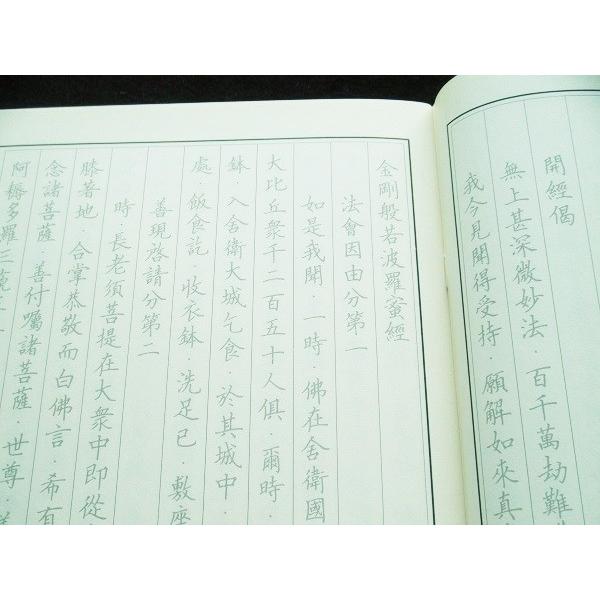 開經偈
無上甚深微妙法．百千萬劫難
我今見聞得受持．願解如來真
金剛般若波羅蜜經
法會因由分第一
如是我聞．一時．佛在舍衛國
大比丘衆千二百五十人俱．爾時．
鉢．入舍衛大城乞食．於其城中．
處．飯食訖．收衣鉢．洗足已．敷座
善現啓請分第二
時．長老須菩提在大衆中即從
膝著地．合掌恭敬而白佛言．希有
念諸菩薩．善付囑諸菩薩．世尊．
阿耨多羅三